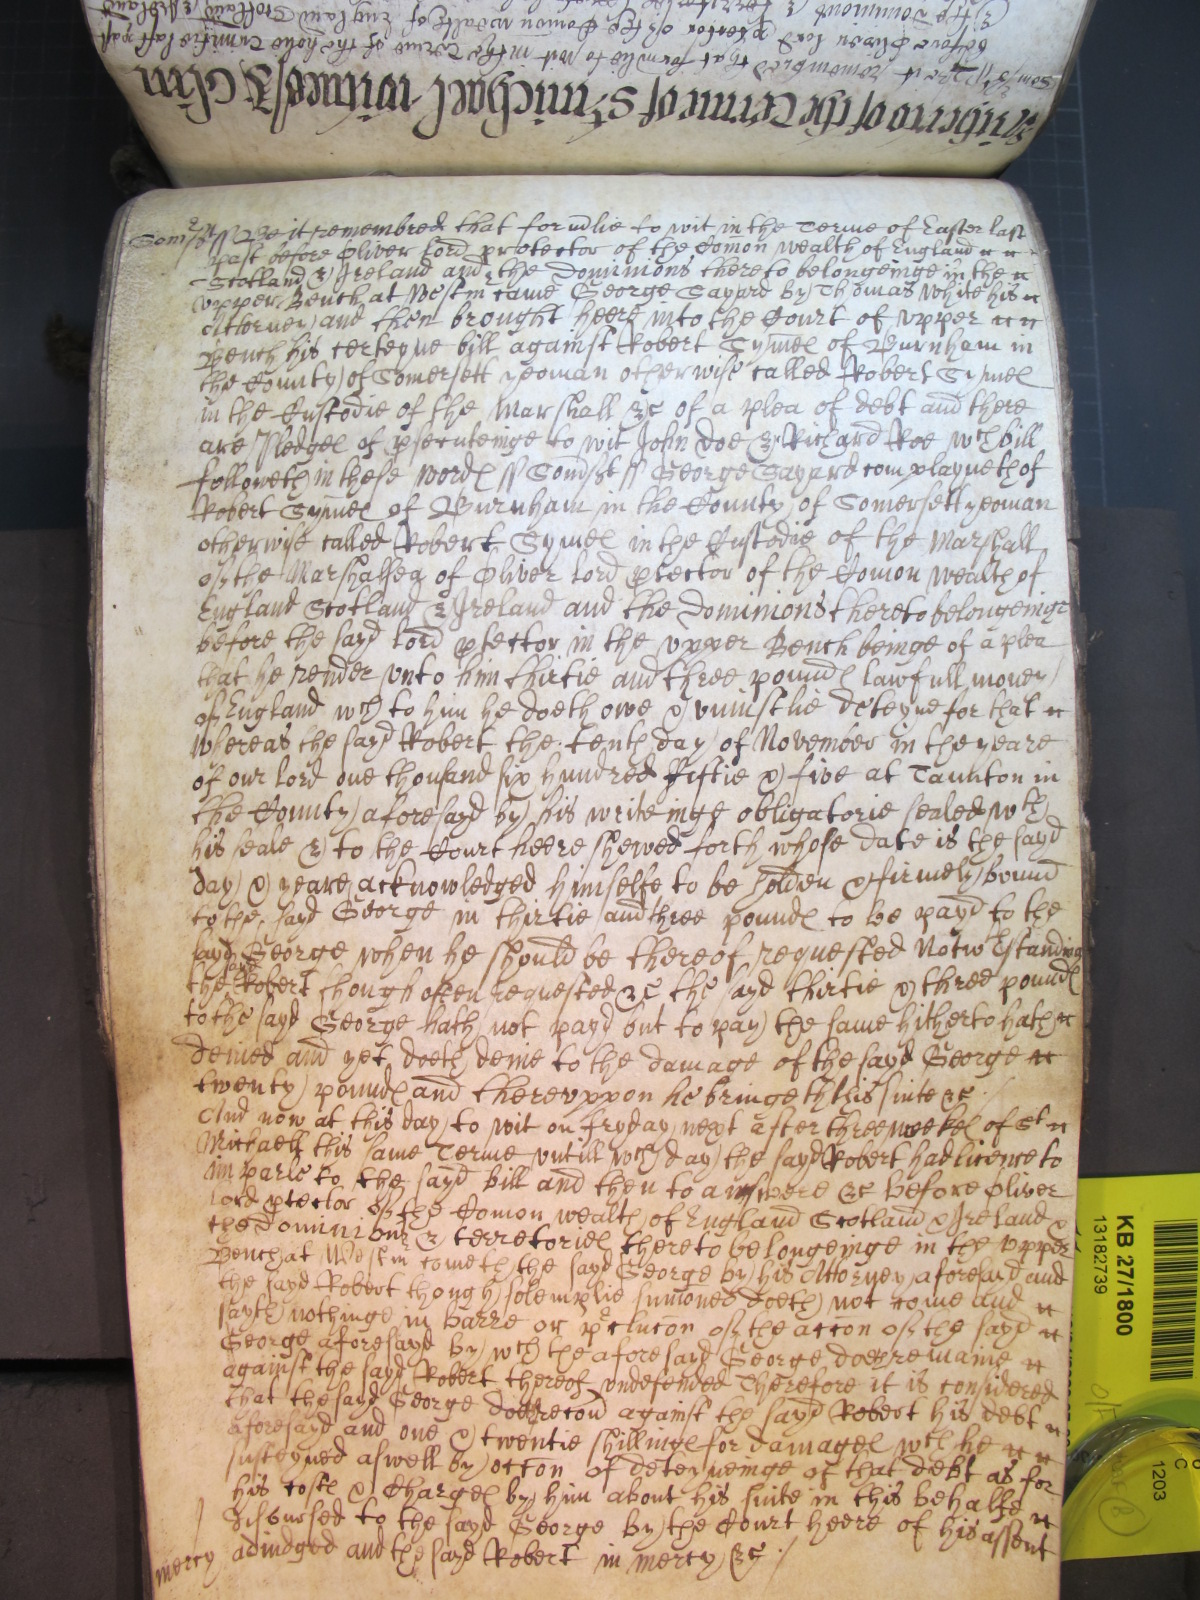 Som̃st ss Be it remembred that formlie to wit in the Terme of Easter last
past before Oliver Lord protector of the Com̃on wealth of England
Scotland & Ireland and the Dominions thereto belongeinge in the
vpper Bench at Westm̃ came George Gapard by Thomas White his
Attorney and then brought heere into the Court of vpper
Bench his certeyne bill against Robert Symes of Burnham in
the County of Somersett yeoman otherwise called Robert Symes
in the Custodie of the Marshall &c of a plea of debt and there
are Pledges of psecuteinge to wit John Doe & Richard Roe wch bill
followeth in these words ss Som̃st ss George Gapard complayneth of
Robert Symes of Burnham in the County of Somersett yeoman
otherwise called Robert Symes in the Custodie of the Marshall
of the Marshalsea of Oliver Lord ptector of the Com̃on wealth of
England Scotland & Ireland and the Dominions thereto belongeinge
before the sayd Lord ptector in the vpper Bench beinge of a plea
that he render vnto him thirtie and three pounds lawfull money
of England wch to him he doeth owe & vniustlie deteyne for that
whereas the sayd Robert the tenth day of November in the yeare
of our Lord one thousand six hundred Fiftie & five at Taunton in
the County aforesayd by his writeinge obligatorie sealed wth
his seale & to the Court heere shewed forth whose date is the sayd
day & yeare acknowledged himselfe to be holden & firmely bound
to the sayd George in thirtie and three pounds to be payd to the
sayd George when he should be thereof requested Notwthstanding
the sayd Robert though often requested &c the sayd thirtie & three pounds
to the sayd George hath not payd but to pay the same hitherto hath
denied and yet doeth denie to the damage of the sayd George
twenty pounds and therevppon he bringeth this suite &c
And now at this day to wit on fryday next after three weekes of St
Michaell this same Terme vntill wch day the sayd Robert had licence to
imparle to the sayd bill and then to answere &c before Oliver
Lord ptector of the Com̃on wealth of England Scotland & Ireland &
the Dominions & territories thereto belongeinge in the vpper
Bench at Westm̃ cometh the sayd George by his Attorney aforesaid and
the sayd Robert though solemplie sum̃oned doeth not come and
sayth nothinge in barre or pclucon of the accon of the sayd
George aforesayd by wch the aforesayd George doe remaine
against the sayd Robert thereof vndefended Therefore it is considered
that the sayd George doe recov against the sayd Robert his debt
aforesayd and one & twentie shillings for damages wch he
susteyned aswell by occon of deteyneinge of that debt as for
his costs & Charges by him about his suite in this behalfe
disbursed to the sayd George by the Court heere of his assent
mercy adiudged and the sayd Robert in mercy &c
KB 27/1800
13182739
C
1203